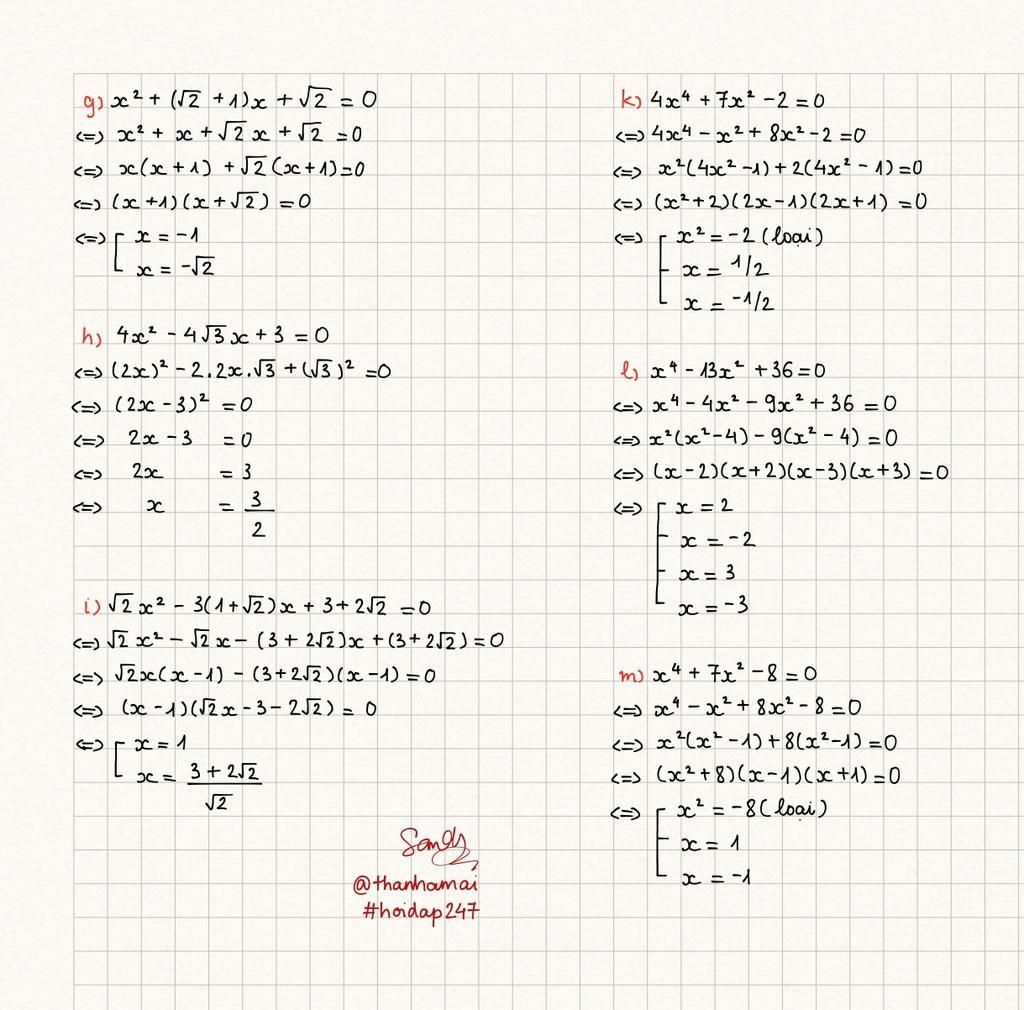 g) x² + (√2 + 1)x + √2 = 0
<=> x² + x + √2 x + √2 = 0
<=> x(x + 1) + √2 (x + 1) = 0
<=> (x + 1)(x + √2) = 0
<=> [ x = -1
x = -√2
h) 4x² - 4√3 x + 3 = 0
<=> (2x)² - 2.2x.√3 + (√3)² = 0
<=> (2x - 3)² = 0
<=> 2x - 3 = 0
<=> 2x = 3
<=> x = 3/2
i) √2 x² - 3(1 + √2)x + 3 + 2√2 = 0
<=> √2 x² - √2 x - (3 + 2√2)x + (3 + 2√2) = 0
<=> √2x(x - 1) - (3 + 2√2)(x - 1) = 0
<=> (x - 1)(√2x - 3 - 2√2) = 0
<=> [ x = 1
x = (3 + 2√2)/√2
Sandy
@thanhamai
#hoidap247
k) 4x⁴ + 7x² - 2 = 0
<=> 4x⁴ - x² + 8x² - 2 = 0
<=> x²(4x² - 1) + 2(4x² - 1) = 0
<=> (x² + 2)(2x - 1)(2x + 1) = 0
<=> [ x² = -2 (loại)
x = 1/2
x = -1/2
l) x⁴ - 13x² + 36 = 0
<=> x⁴ - 4x² - 9x² + 36 = 0
<=> x²(x² - 4) - 9(x² - 4) = 0
<=> (x - 2)(x + 2)(x - 3)(x + 3) = 0
<=> [ x = 2
x = -2
x = 3
x = -3
m) x⁴ + 7x² - 8 = 0
<=> x⁴ - x² + 8x² - 8 = 0
<=> x²(x² - 1) + 8(x² - 1) = 0
<=> (x² + 8)(x - 1)(x + 1) = 0
<=> [ x² = -8 (loại)
x = 1
x = -1